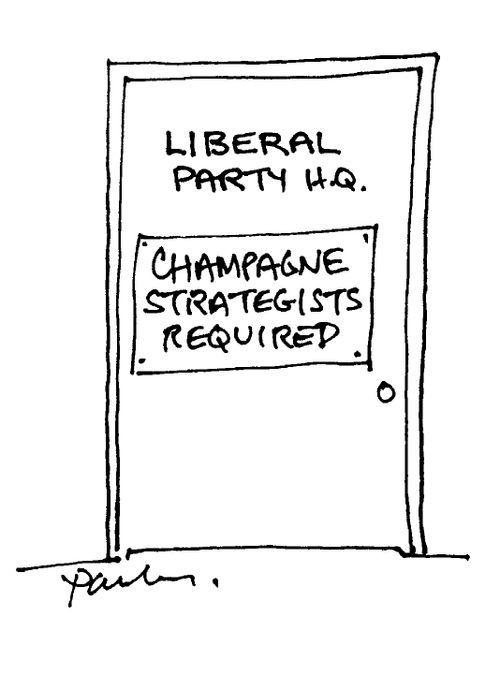 LIBERAL
PARTY H.Q.
CHAMPAGNE
STRATEGISTS
REQUIRED